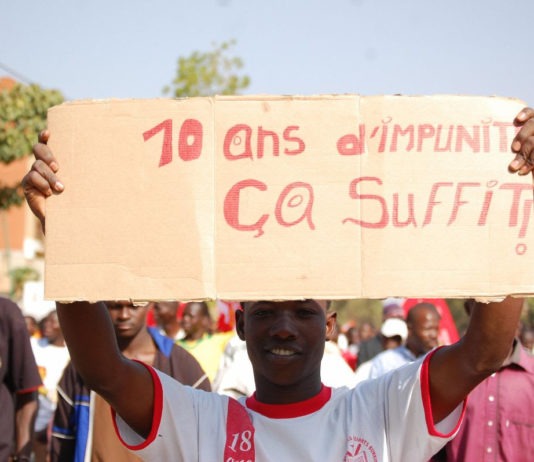 10 ans d'impunit
Ça suffit!
18